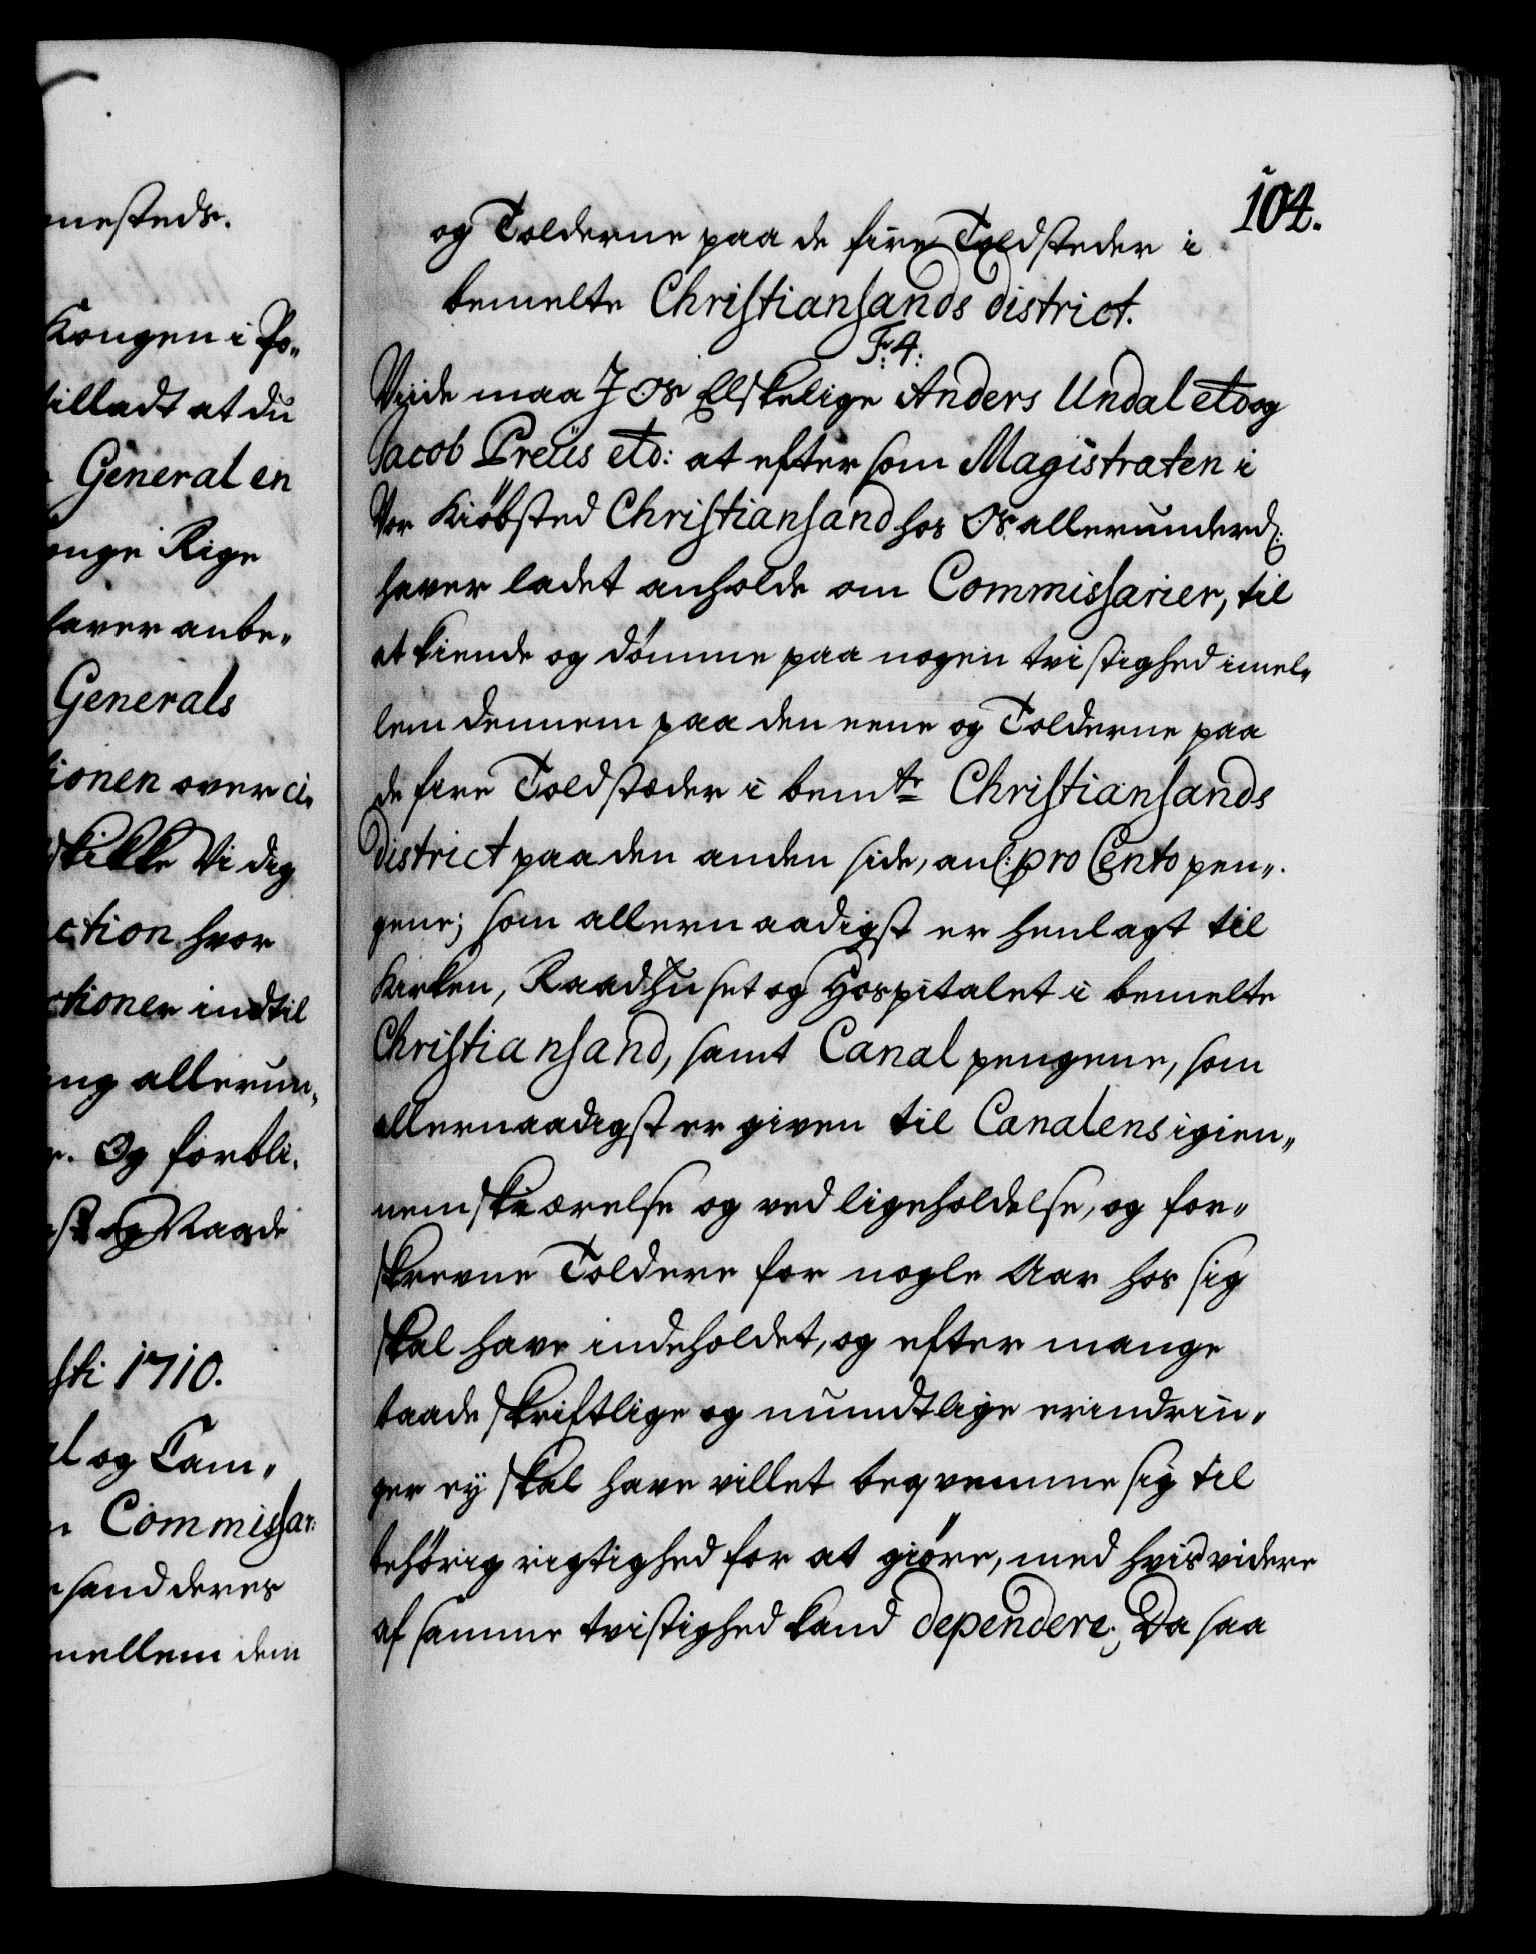 nesteds.
Kongen i Po„
tilladt at du
General en
onge Rige
haver anbe„
Generals
tionen over ci„
skikke Vi dig
ction hvor
ctioner indtil
ng allerun„
Og forbli„
og Naade
sti 1710.
al og Cam„
Commissar:
sand deres
mellem dem
104.
og Tolderne paa de fire Toldsteder i
bemelte Christiansands district.
F. 4:
Viide maa J Os Elskelige Anders Undal etc og
Jacob Preüs etc: at efter som Magistraten i
Vor Kiöbsted Christiansand hos Os allerunderd:
haver ladet anholde om Commissarier, til
at kiende og dömme paa nogen tvistighed imel„
lem dennem paa den eene og Tolderne paa
de fire Toldstæder i bemte Christiansands
district paa den anden side, anl: pro Cento pen„
gene; som allernaadigst er henlagt til
Kirken, Raadhuset og Hospitalet i bemelte
Christiansand, samt Canal pengene, som
allernaadigst er given til Canalens igien„
nemskiærelse og ved ligeholdelse, og for„
skrevne Toldere for nogle Aar hos sig
skal have indeholdet, og efter mange
baade skriftlige og mundtlige erindrin„
ger ey skal have villet beqvemme sig til
behörig rigtighed for at giöre, med hvis videre
af samme tvistighed kand dependere; Da saa